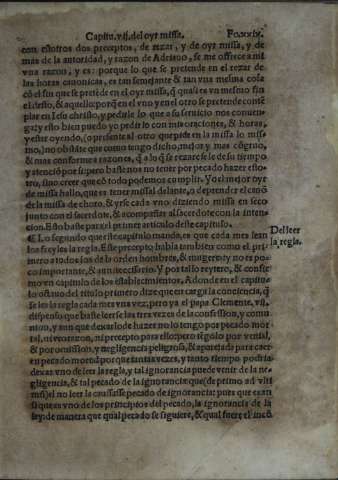 Capitu. vij. del oyr missa. Fo. xxix.
con estotros dos preceptos, de rezar, y de oyr missa, y de
mas de la autoridad, y razon de Adriano, se me offrece a mi
vna razon, y es: porque lo que se pretende en el rezar de
las horas canonicas, es tan semejante & tan vna mesma cosa
cõ el fin que se pretẽde en el oyr missa, q̃ quasi es vn mesmo fin
el desto, & aquello: porq̃ en el vno y en el otro se pretende contẽ
plar en Iesu christo, y pedirle lo que a su seruicio nos conuen-
ga: y esto bien puedo yo pedir lo con mis oraciones, & horas,
y estar oyendo, (o presente al otro que pide en la missa lo mis-
mo,) no obstãte que como tengo dicho, mejor y mas cõgruo,
& mas conformes razones, q̃ a lo q̃ se rezare se le de su tiempo
y atenciõ por si: pero basteno s no tener por pecado hazer esto-
tro, sino creer que cõ todo podemos cumplir. Y o el mejor oyr
de missa hallo, que es tener missal delante, o deprender el canõ
de la missa de choro, & yrse cada vno diziendo missa en seco
junto con el sacerdote, & acompañar al sacerdote con la inten-
cion. Esto baste para el primer articulo deste capitulo.
¶ Lo segundo que este capitulo manda, es que cada mes lean
los freyles la regla. Este precepto habla tambien como el pri- Del leer
mero a todos los de la orden hombres, & mugeres: y no es po- la regla.
co importante, & aun necessario. Y por tal lo reytero, & confir-
mo en capitulo de los establecimientos. Adonde en el capitu-
lo octauo del titulo primero dize que encarga la conciencia, q̃
se les lea la regla cada mes vna vez, pero ya el papa Clemente. vij.
dispenso que baste leerse las tres vezes de la confession, y comu
nion, y aun que dexarlo de hazer no lo tengo por pecado mor
tal, ni votaron, ni precepto para ello: pero tẽgolo por venial,
& por omission, y negligencia peligrosa, & aparejada para caer
en pecado mortal porque tantas vezes, y tanto tiempo podria
dexar vno de leer la regla, y tal ignorancia puede venir de la ne-
gligencia, & tal pecado de la ignorancia: que (de primo ad vlti
mũ) el no leer la caussasse pecado de ignorancia: pues que quan
si que es vno de los principios del pecado, la ignorancia de la
ley: de manera que qual pecado se siguiere, & qual fuere el incõ